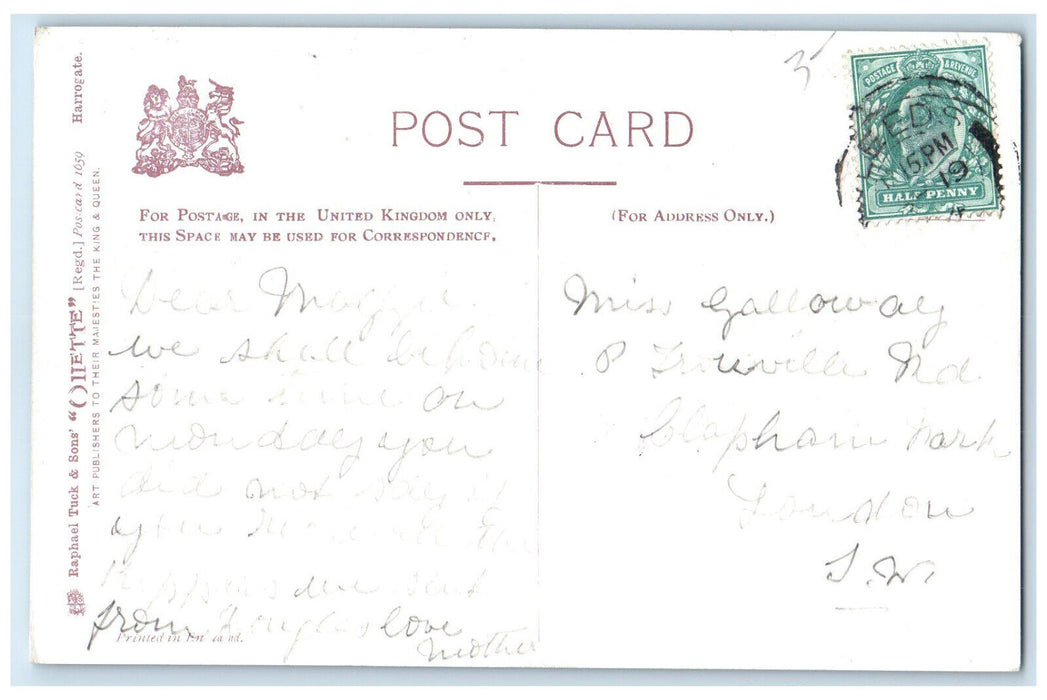 Raphael Tuck & Sons' "OILETTE" [Regd.] Postcard 1659 Harrogate.
ART PUBLISHERS TO THEIR MAJESTIES THE KING & QUEEN.
POST CARD
FOR POSTAGE, IN THE UNITED KINGDOM ONLY,
THIS SPACE MAY BE USED FOR CORRESPONDENCE.
(FOR ADDRESS ONLY.)
POSTAGE & REVENUE
HALFPENNY
LEEDS
15 PM
19
Dear Maggie
we shall be home
some time on
monday you
did not say if
you
Kippers we sent
from Douglas love
mother
Printed in England.
Miss Galloway
8 Trouville Rd.
Clapham Park
London
S.W.